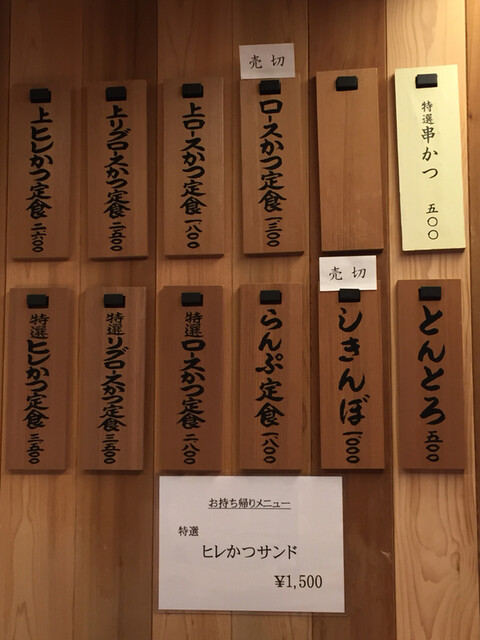 特選串かつ 五〇〇
売切
ロースかつ定食 一、三〇〇
上ロースかつ定食 一、八〇〇
上リブロースかつ定食 二、五〇〇
上ヒレかつ定食 二、六〇〇
とんとろ 五〇〇
売切
しきんぼ 一、〇〇〇
らんぷ定食 一、八〇〇
特選ロースかつ定食 二、八〇〇
特選リブロースかつ定食 三、五〇〇
特選ヒレかつ定食 三、五〇〇
お持ち帰りメニュー
特選
ヒレかつサンド
¥1,500